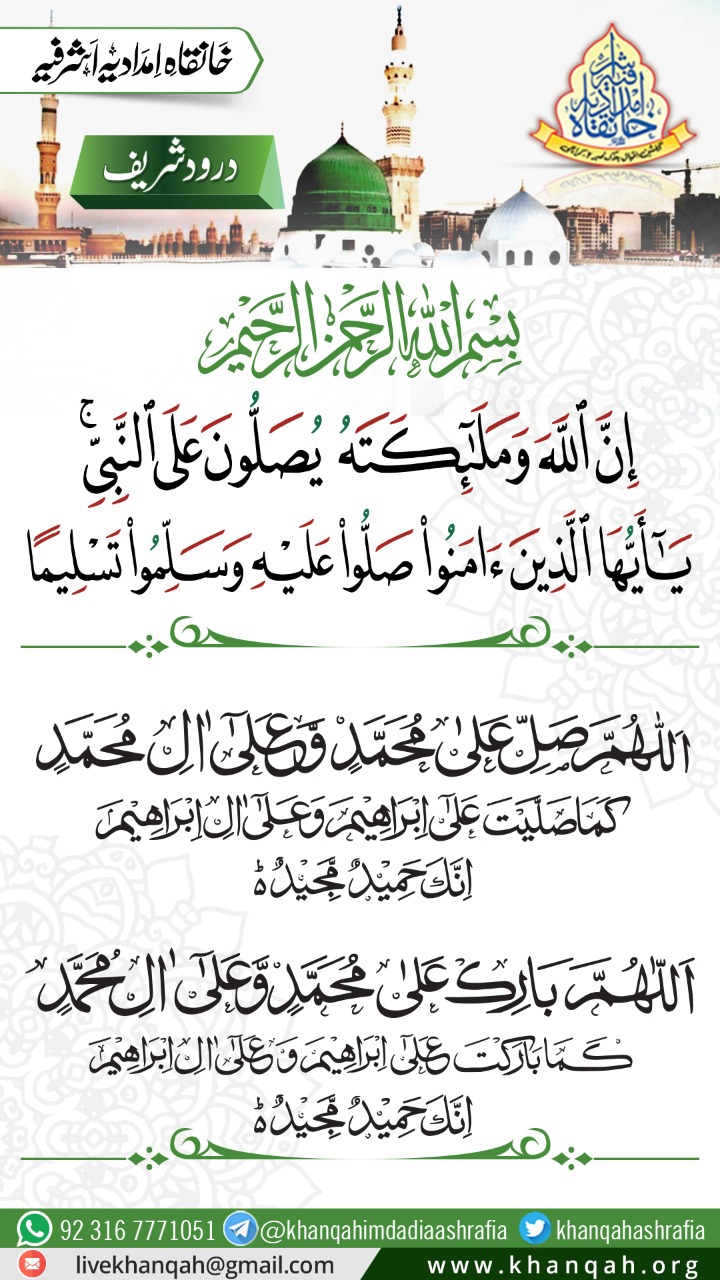 خانقاہ امدادیہ اشرفیہ
درود شریف
بِسْمِ اللهِ الرَّحْمٰنِ الرَّحِيْمِ
إِنَّ ٱللَّهَ وَمَلَـٰٓئِكَتَهُۥ يُصَلُّونَ عَلَى ٱلنَّبِىِّ ۚ
يَـٰٓأَيُّهَا ٱلَّذِينَ ءَامَنُوا۟ صَلُّوا۟ عَلَيْهِ وَسَلِّمُوا۟ تَسْلِيمًا
اَللّٰهُمَّ صَلِّ عَلٰى مُحَمَّدٍ وَّعَلٰٓى اٰلِ مُحَمَّدٍ
كَمَا صَلَّيْتَ عَلٰٓى اِبْرَاهِيْمَ وَعَلٰٓى اٰلِ اِبْرَاهِيْمَ
اِنَّكَ حَمِيْدٌ مَّجِيْدٌ ؕ
اَللّٰهُمَّ بَارِكْ عَلٰى مُحَمَّدٍ وَّعَلٰٓى اٰلِ مُحَمَّدٍ
كَمَا بَارَكْتَ عَلٰٓى اِبْرَاهِيْمَ وَعَلٰٓى اٰلِ اِبْرَاهِيْمَ
اِنَّكَ حَمِيْدٌ مَّجِيْدٌ ؕ
92 316 7771051 @khanqahimdadiaashrafia khanqahashrafia
livekhanqah@gmail.com www.khanqah.org